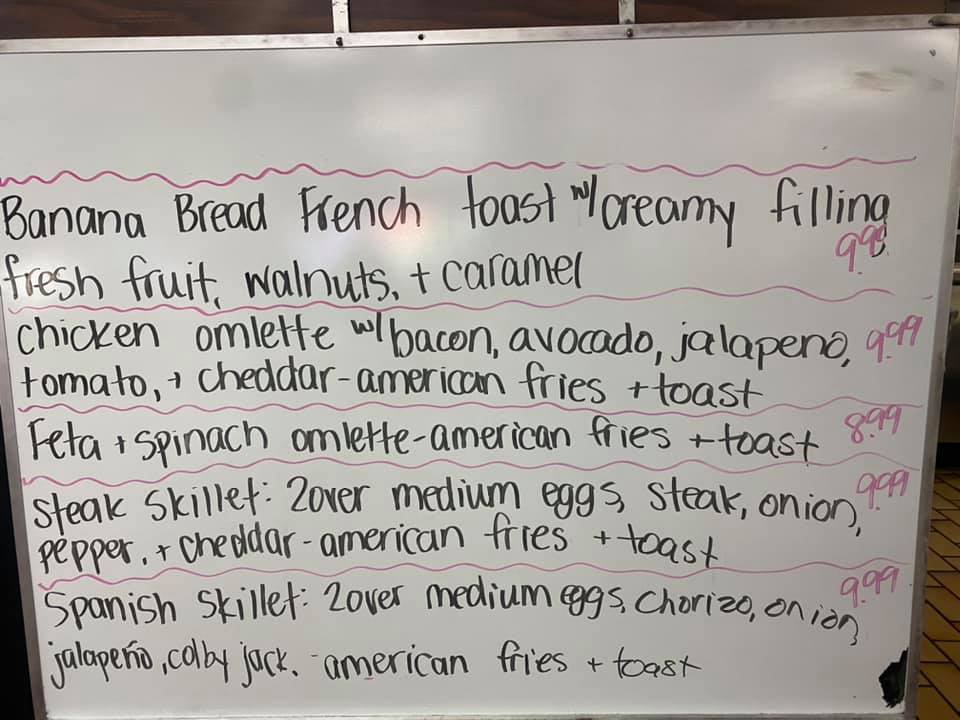 Banana Bread French toast w/ creamy filling
9.99
fresh fruit, walnuts, + caramel
chicken omlette w/ bacon, avocado, jalapeno, 9.99
tomato, + cheddar - american fries + toast
Feta + spinach omlette - american fries + toast 8.99
Steak Skillet: 2 over medium eggs, steak, onion, 9.99
pepper, + cheddar - american fries + toast
Spanish Skillet: 2 over medium eggs, chorizo, onion, 9.99
jalapeño, colby jack. - american fries + toast